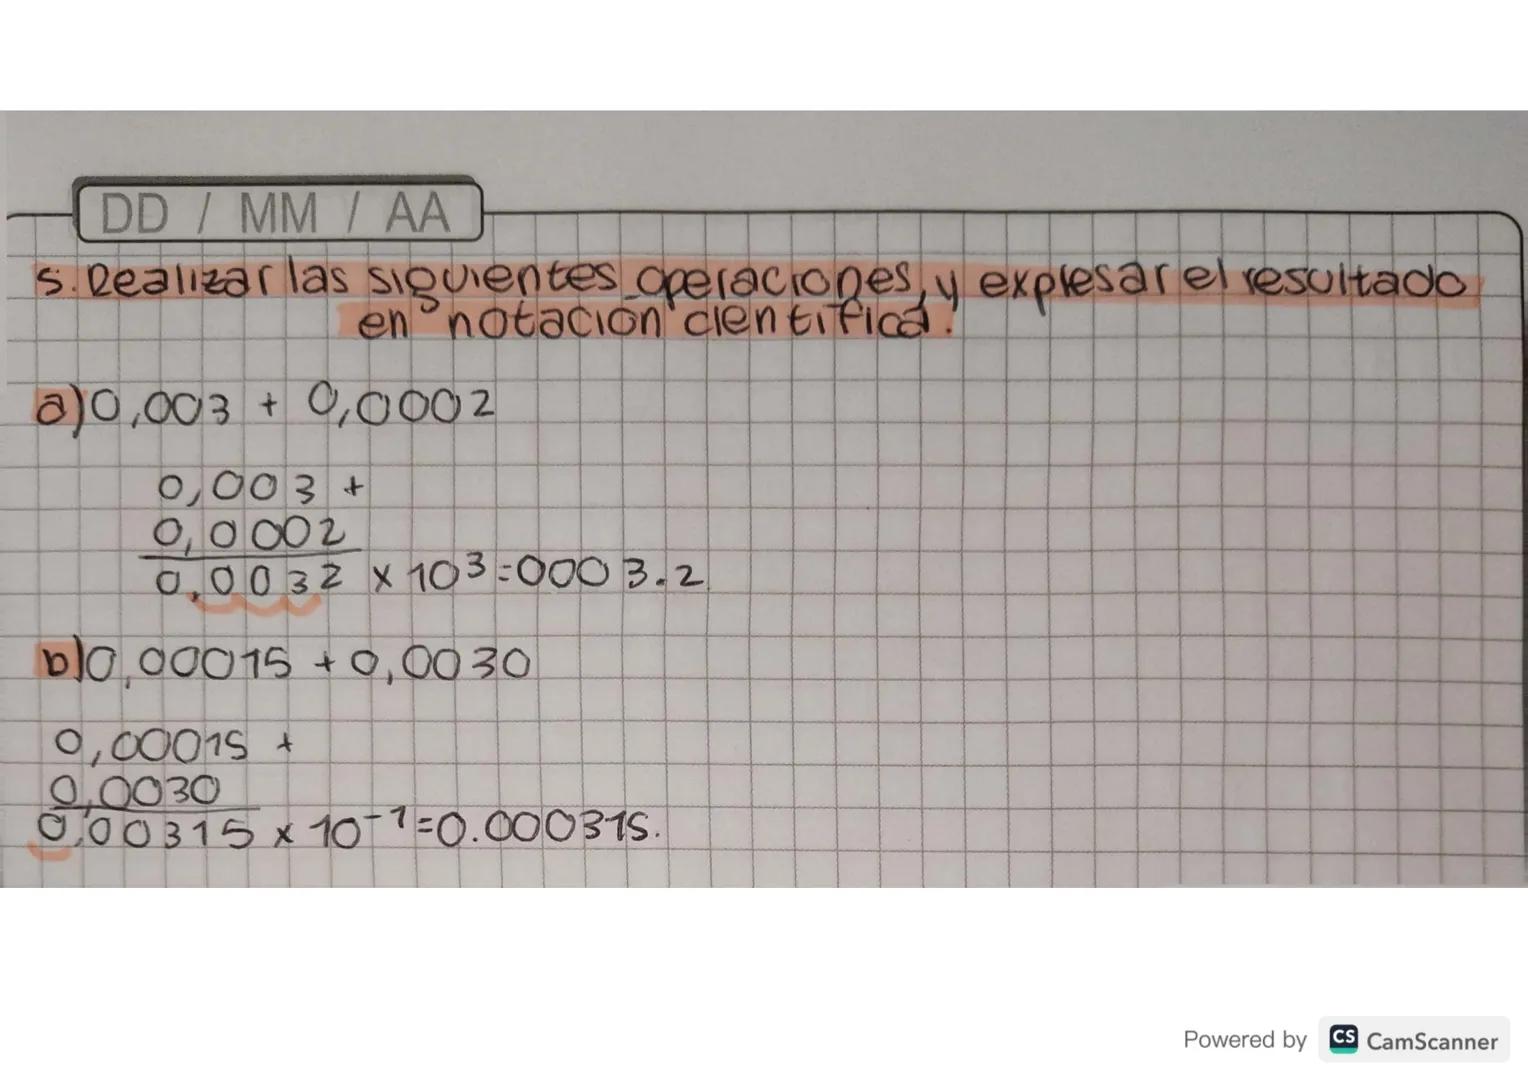 DD / MM / AA
5. Realizar las siguientes operaciones, y expresar el resultado
en notación cientifica.
a) 0,003 + 0,0002
0,003 +
0,0002
0,0032 x 10³=0003.2
b) 0,00015 + 0,0030
0,00015 +
0,0030
0,00315 x 10⁻¹=0.000315.
Powered by CS CamScanner